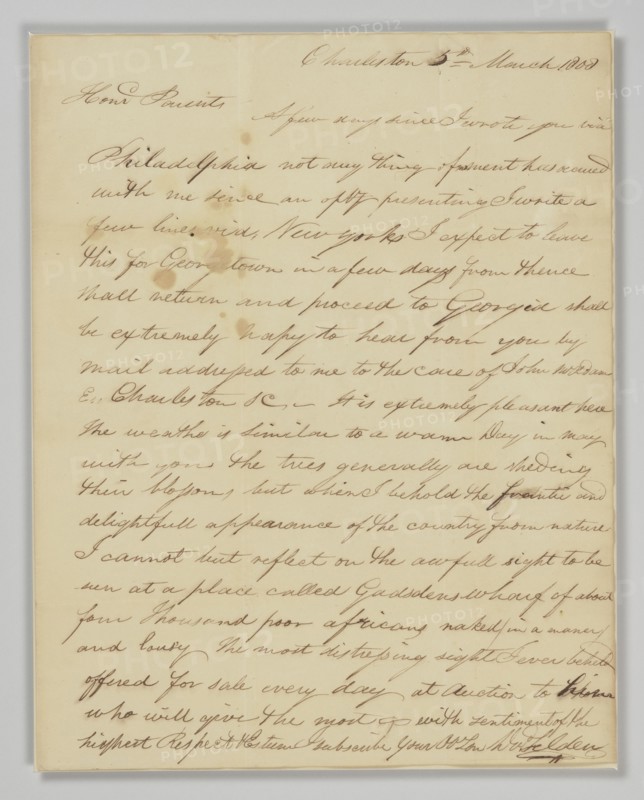 Charleston 5th March 1808
Hond Parents
A few days since I wrote you via
Philadelphia not any thing of moment has occured
with me since an opty presenting I write a
few lines via, New york I expect to leave
this for Georgetown in a few days from thence
shall return and proceed to Georgia shall
be extremely hapy to hear from you by
mail addressed to me to the care of John
Charleston SC, It is extremely pleasant here
the weather is similar to a warm Day in may
with you the trees generally are sheding
their blossoms but when I behold the and
delightfull appearance of the country from nature
I cannot but reflect on the awfull sight to be
seen at a place called Gadsdens wharf of about
four thousand poor africans naked (in a maner)
and lousy the most distressing sight I ever beheld
offered for sale every day at auction to
who will give the most with sentiment of the
highest Respect & Esteem I subscribe your Son
PHOTO12